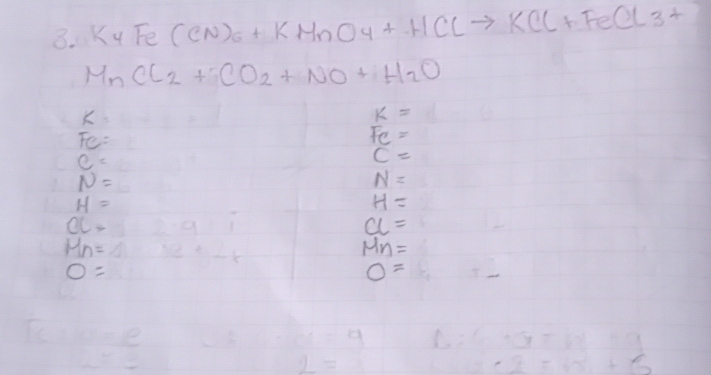 3. K4 Fe (CN)6 + KMnO4 + HCl → KCl + FeCl3 +
MnCl2 + CO2 + NO + H2O
K
K =
Fe=
Fe =
C=
C =
N=
N=
H =
H=
Cl=
Cl=
Mn=
Mn=
O=
O=